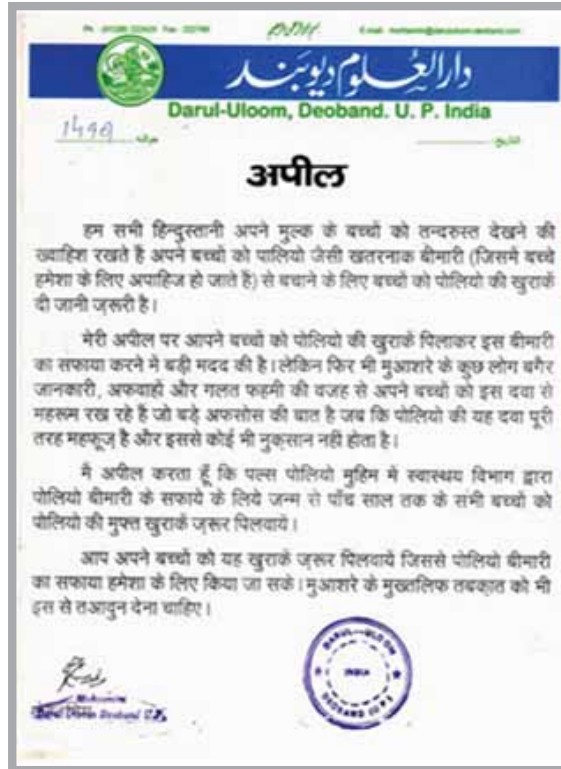 دارالعلوم دیوبند
Darul-Uloom, Deoband. U. P. India
अपील
हम सभी हिन्दुस्तानी अपने मुल्क के बच्चों को तन्दरुस्त देखने की
ख्वाहिश रखते हैं अपने बच्चों को पालियो जैसी खतरनाक बीमारी (जिसमे बच्चे
हमेशा के लिए अपाहिज हो जाते हैं) से बचाने के लिए बच्चों को पोलियो की खुराकें
दी जानी ज़रूरी है।
मेरी अपील पर आपने बच्चों को पोलियो की खुराकें पिलाकर इस बीमारी
का सफाया करने मे बडी मदद की है। लेकिन फिर भी मुआशरे के कुछ लोग बगैर
जानकारी, अफवाहों और गलत फहमी की वजह से अपने बच्चों को इस दवा से
महरूम रख रहे है जो बडे अफसोस की बात है जब कि पोलियो की यह दवा पूरी
तरह महफूज़ है और इससे कोई भी नुक़सान नहीं होता है।
मै अपील करता हूँ कि पल्स पोलियो मुहिम मे स्वास्थय विभाग द्वारा
पोलियो बीमारी के सफाये के लिये जन्म से पाँच साल तक के सभी बच्चों को
पोलियो की मुफ्त खुराकें ज़रूर पिलवायें।
आप अपने बच्चों को यह खुराकें ज़रूर पिलवायें जिससे पोलियो बीमारी
का सफाया हमेशा के लिए किया जा सके। मुआशरे के मुख्तलिफ तबक़ात को भी
इस से तआवुन देना चाहिए।
Mohtamim
Darul Uloom Deoband U.P.
DARUL-ULOOM
INDIA
DEOBAND (U P)